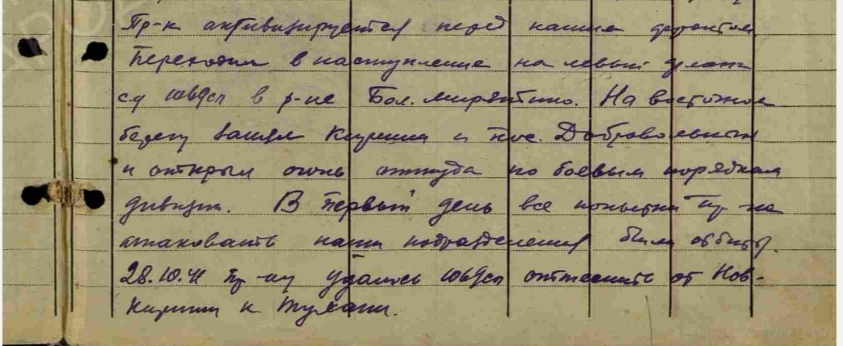 Пр-к активизируется перед нашим фронтом
Переходил в наступление на левый фланг
сд 1069сп в р-не Бол. На восточном
берегу занял Кириши и пос. Добровольный
и открыл огонь оттуда по боевым порядкам
дивизии. В первый день все попытки пр-ка
атаковать наши подразделения были отбиты.
28.10.41 пр-ку удалось 1069сп оттеснить от Нов-
Кириши к